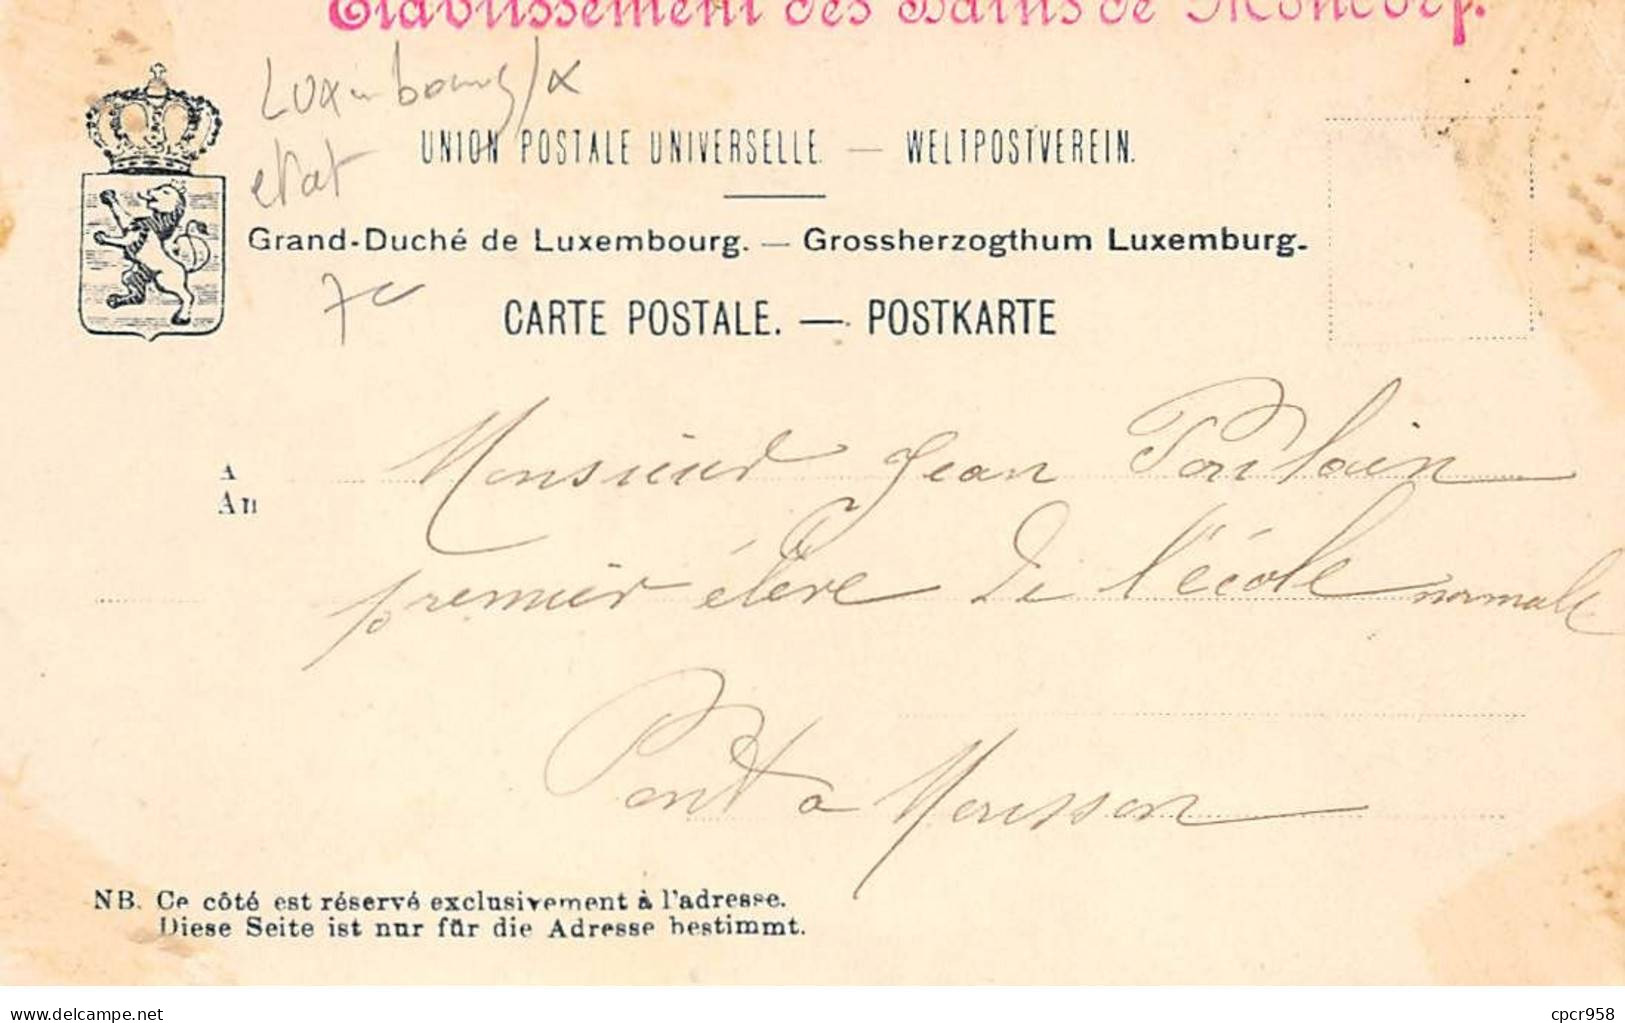 Etablissement des Bains de Mondorf.
Luxembourg/x
etat
UNION POSTALE UNIVERSELLE. — WELTPOSTVEREIN.
Grand-Duché de Luxembourg. — Grossherzogthum Luxemburg.
7c
CARTE POSTALE. — POSTKARTE
A Monsieur Jean Poulain
An
premier élève de l'école normale
Pont à Mousson
NB. Ce côté est réservé exclusivement à l'adresse.
Diese Seite ist nur für die Adresse bestimmt.
delcampe.net
cpcr958